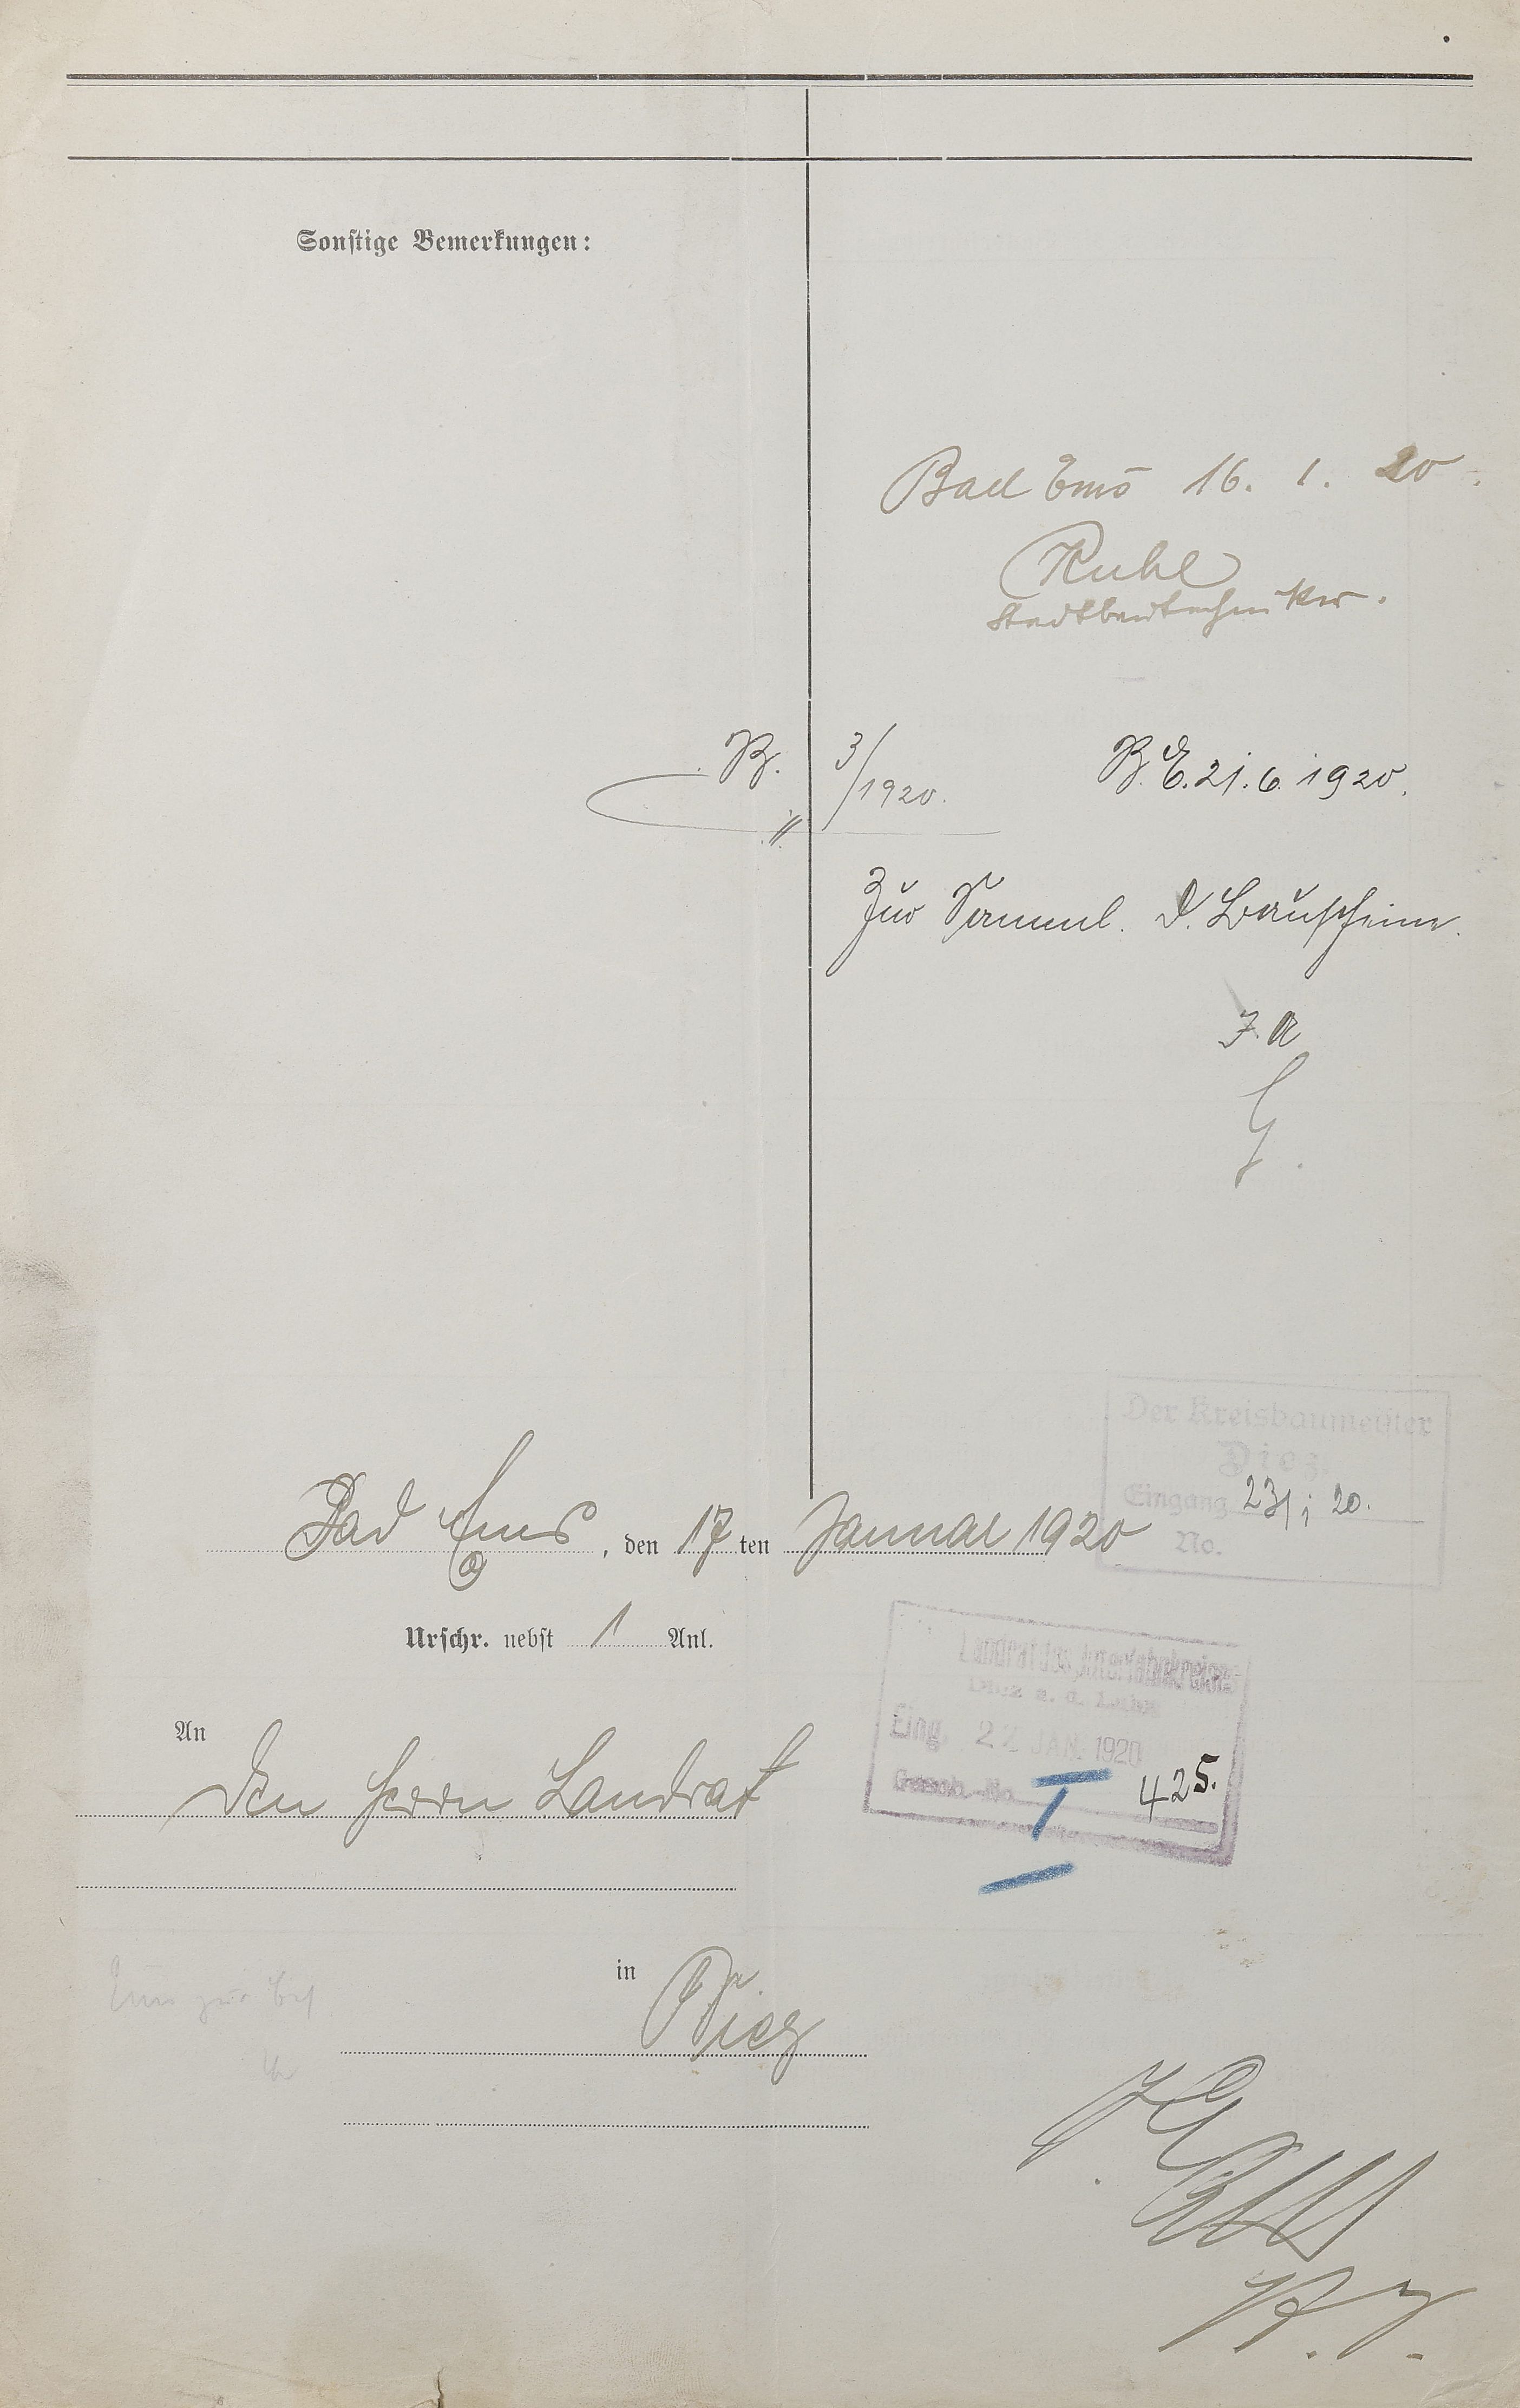 Sonstige Bemerkungen:
Bad Ems 16. 1. 20.
Ruhl
Stadtbautechniker.
B. 3/1920.
B. E. 21. 6. 1920.
Zur Samml. d. Bauscheine.
J. A
G.
Der Kreisbaumeister
Diez.
Eingang 23/1 20.
No.
Bad Ems, den 17ten Januar 1920
Urschr. nebst 1 Anl.
Landrat des Unterlahnkreises
Diez a. d. Lahn
Eing. 22 JAN. 1920
Gesch.-No. I 425.
An
den Herrn Landrat
in
Diez